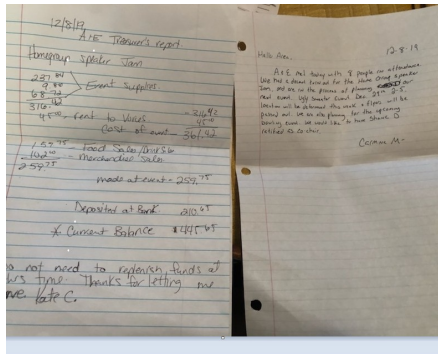 12/8/19
A&E Treasurer's report
Homegroup Speaker Jam
237.
9.
68.
Event Supplies
316.42
45.00 - rent to
- 316.42
45.00
Cost of event - 361.42
157.75 - Food Sales/
102.00 - merchandise sales
259.75
made at event - 259.75
Deposited at Bank 210.65
* Current Balance $445.65
not need to replenish funds at
this time. Thanks for letting me
Kate C.
12-8-19
Hello Area,
A&E met today with 8 people in attendance.
We had a decent turnout for the Home Group Speaker
Jam, and are in the process of planning our
next event. Ugly Sweater Event Dec. 29th 2-5.
location will be determined this week & flyers will be
passed out. We are also planning for the upcoming
event. We would like to have Shawn D.
ratified as co chair.
Corinne M-